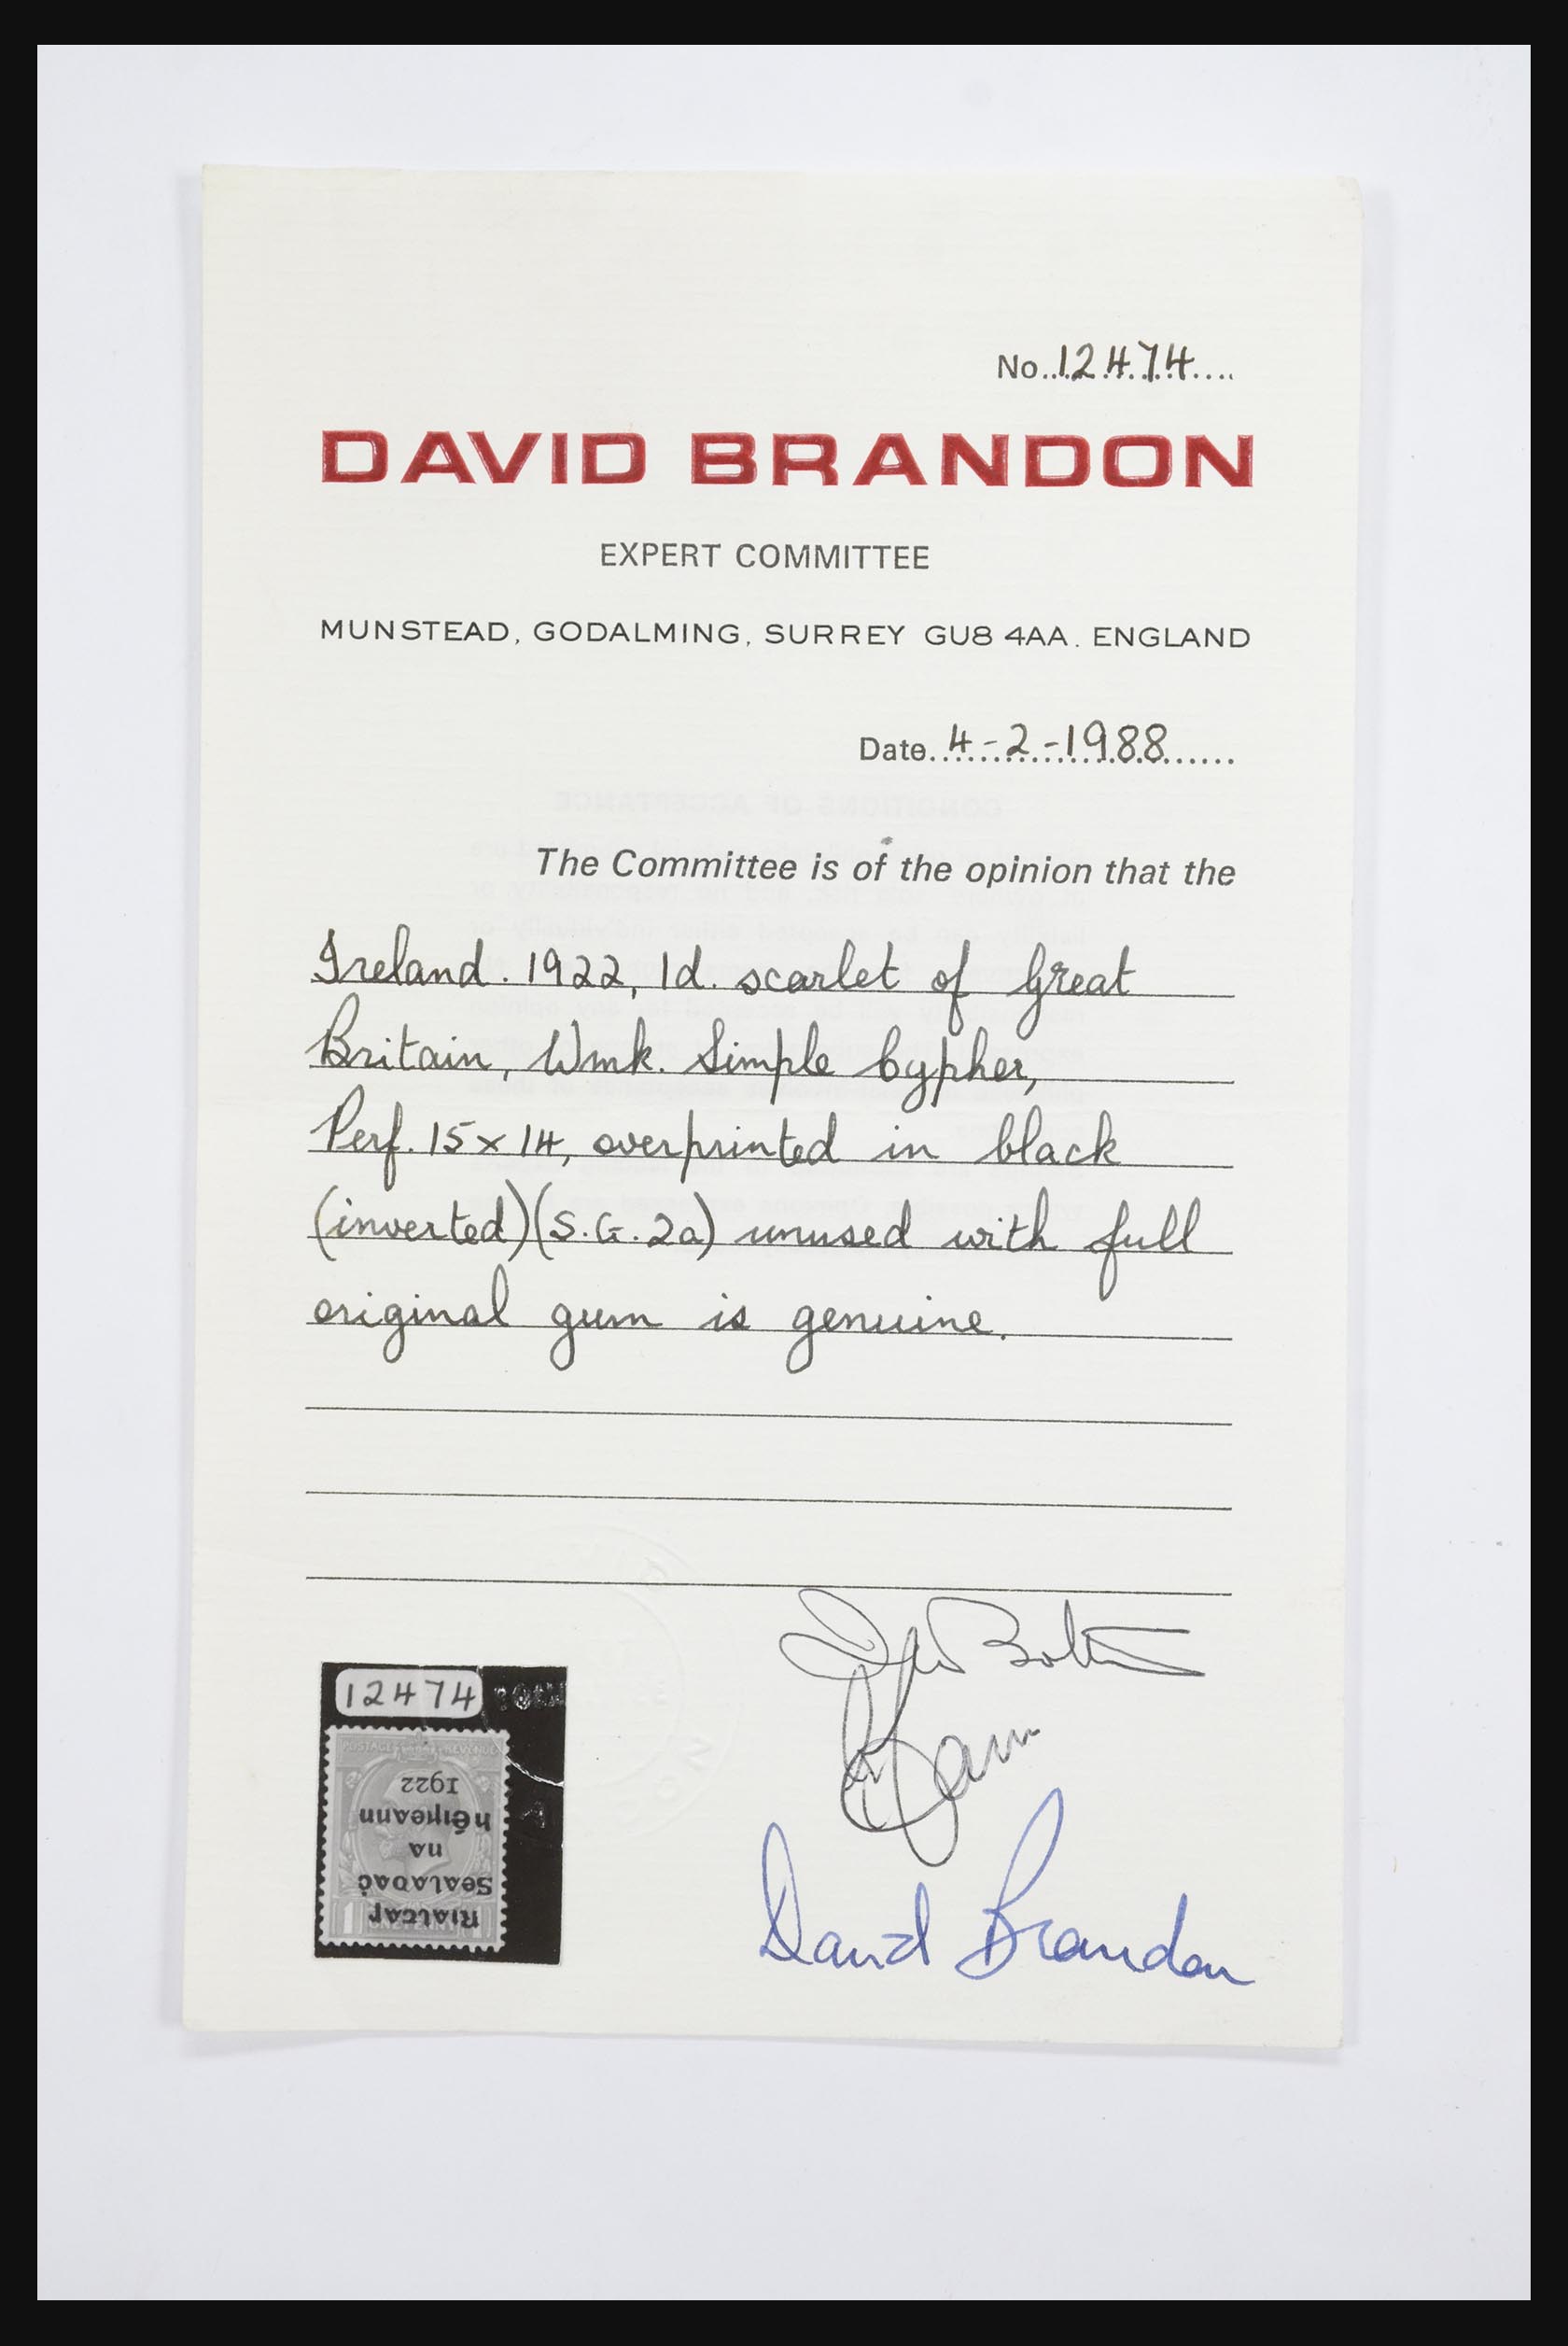 No. 12474
DAVID BRANDON
EXPERT COMMITTEE
MUNSTEAD, GODALMING, SURREY GU8 4AA. ENGLAND
Date 4-2-1988
The Committee is of the opinion that the
Ireland. 1922, 1d. scarlet of Great
Britain, Wmk. Simple Cypher,
Perf. 15 x 14, overprinted in black
(inverted)(S.G. 2a) unused with full
original gum is genuine.
12474
POSTAGE REVENUE
Rialtar
Sealadaċ
na
hÉireann
1922
ONE PENNY
David Brandon